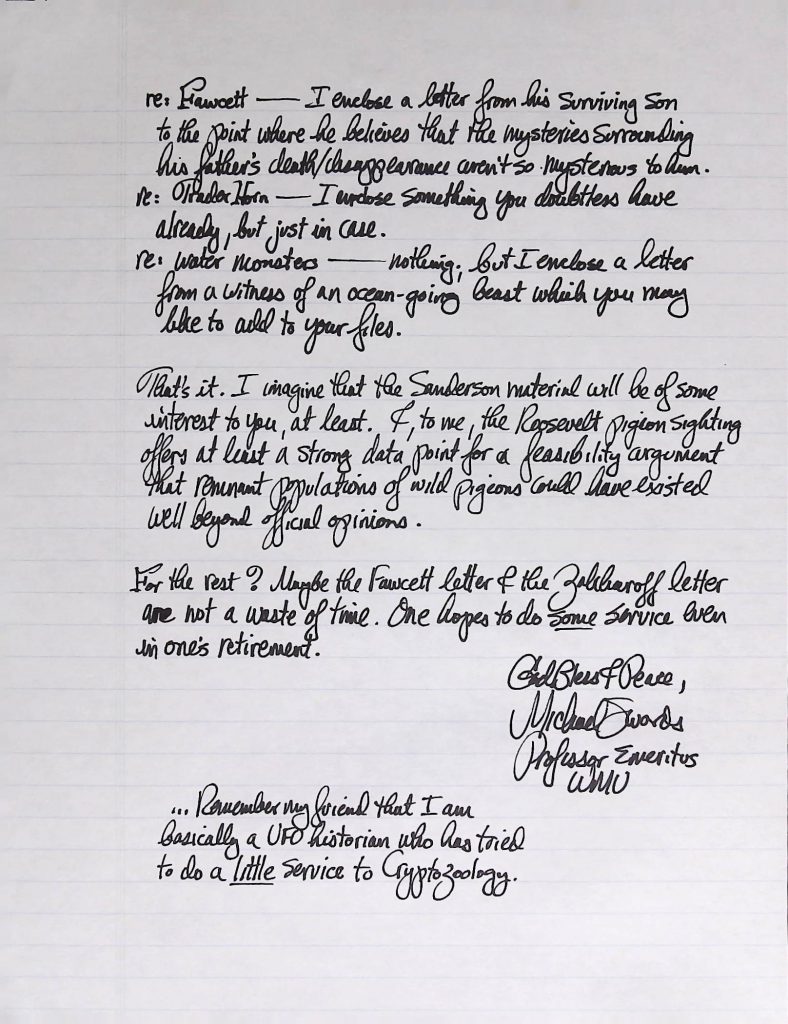 re: Fawcett — I enclose a letter from his surviving son
to the point where he believes that the mysteries surrounding
his father's death/disappearance aren't so mysterious to him.
re: Trader Horn — I enclose something you doubtless have
already, but just in case.
re: water monsters — nothing; but I enclose a letter
from a witness of an ocean-going beast which you may
like to add to your files.
That's it. I imagine that the Sanderson material will be of some
interest to you, at least. &, to me, the Roosevelt pigeon sighting
offers at least a strong data point for a feasibility argument
that remnant populations of wild pigeons could have existed
well beyond official opinions.
For the rest? Maybe the Fawcett letter & the letter
are not a waste of time. One hopes to do some service even
in one's retirement.
God Bless & Peace,
Michael Swords
Professor Emeritus
WMU
... Remember my friend that I am
basically a UFO historian who has tried
to do a little service to Cryptozoology.